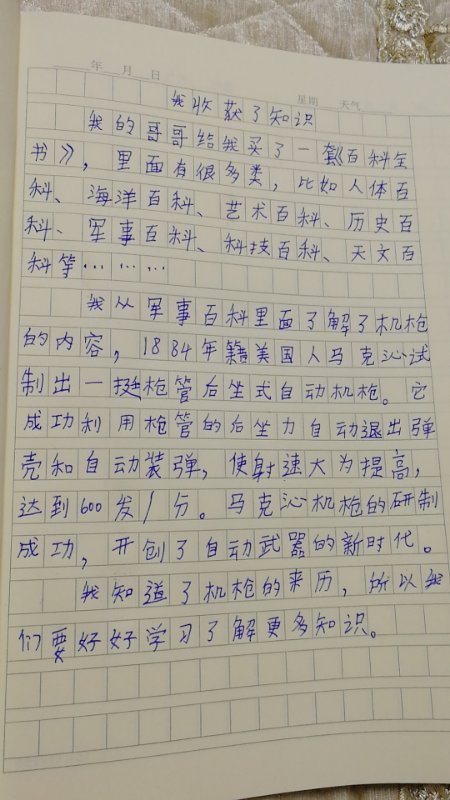 年 月 日 星期 天气
我收获了知识
我的哥哥给我买了一套《百科全
书》，里面有很多类，比如人体百
科、海洋百科、艺术百科、历史百
科、军事百科、科技百科、天文百
科等………
我从军事百科里面了解了机枪
的内容，1884年籍美国人马克沁试
制出一挺枪管后坐式自动机枪。它
成功利用枪管的后坐力自动退出弹
壳和自动装弹，使射速大为提高，
达到600发/分。马克沁机枪的研制
成功，开创了自动武器的新时代。
我知道了机枪的来历，所以我
们要好好学习了解更多知识。